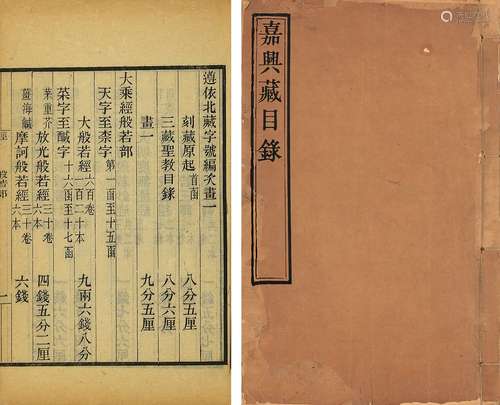 嘉興藏目錄
遵依北藏字號編次畫一
刻藏原起 首函 八分五厘
三藏聖教目錄 八分六厘
畫一 九分五厘
大乘經般若部
天字至柰字 第一函至十五函
大般若經 六百卷 一百二十本 九兩六錢八分
菜字至鹹字 十六函至十七函
菜重芥 放光般若經 三十卷 六本 四錢五分二厘
薑海鹹 摩訶般若經 三十卷 六本 六錢
一